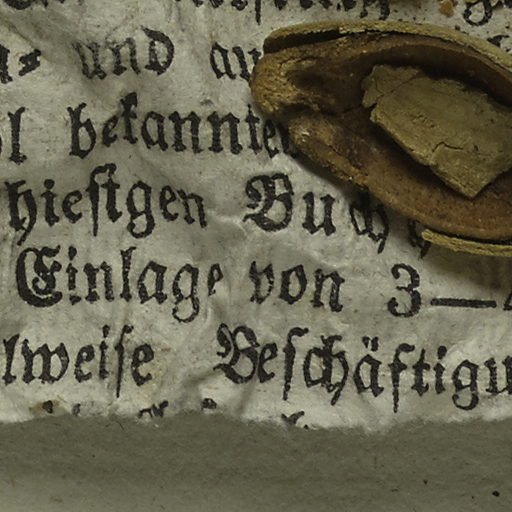 und
bekannten
hiesigen Buch
Einlage von 3—
lweise Beschäftigu